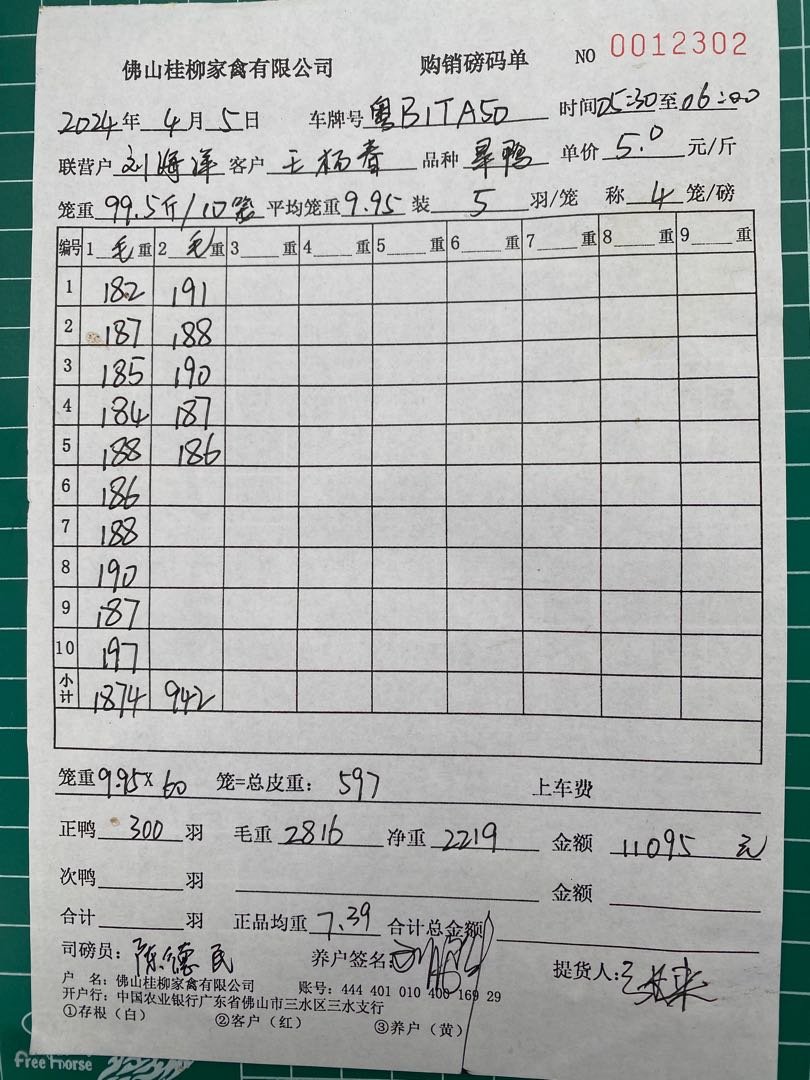 佛山桂柳家禽有限公司 购销磅码单 NO 0012302
2024年 4月 5日 车牌号 粤B1TA50 时间 05:30至06:00
联营户 刘海洋 客户 王杨春 品种 旱鸭 单价 5.0 元/斤
笼重 99.5斤/10笼 平均笼重 9.95 装 5 羽/笼 称 4 笼/磅
编号 1 毛 重 2 毛 重 3 重 4 重 5 重 6 重 7 重 8 重 9 重
1 182 191
2 187 188
3 185 190
4 184 187
5 188 186
6 186
7 188
8 190
9 187
10 197
小计 1874 942
笼重 9.95 X 60 笼=总皮重: 597 上车费
正鸭 300 羽 毛重 2816 净重 2219 金额 11095 元
次鸭 羽 金额
合计 羽 正品均重 7.39 合计总金额
司磅员: 陈德民 养户签名: 提货人:
户 名: 佛山桂柳家禽有限公司 账号: 444 401 010 400 169 29
开户行: 中国农业银行广东省佛山市三水区三水支行
①存根(白) ②客户(红) ③养户(黄)
Free Horse